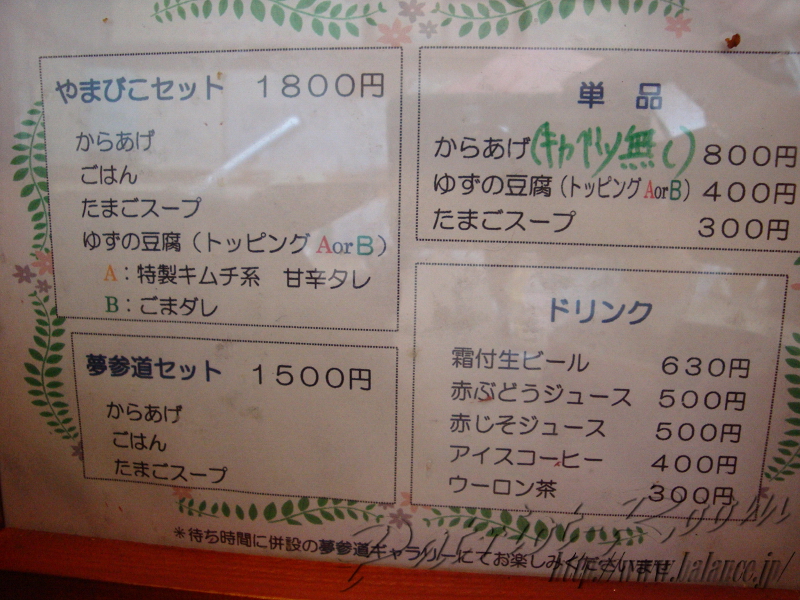 やまびこセット 1800円
からあげ
ごはん
たまごスープ
ゆずの豆腐（トッピングAorB）
A：特製キムチ系 甘辛タレ
B：ごまダレ
夢参道セット 1500円
からあげ
ごはん
たまごスープ
単品
からあげ(キャベツ無し) 800円
ゆずの豆腐（トッピングAorB） 400円
たまごスープ 300円
ドリンク
霜付生ビール 630円
赤ぶどうジュース 500円
赤じそジュース 500円
アイスコーヒー 400円
ウーロン茶 300円
＊待ち時間に併設の夢参道ギャラリーにてお楽しみくださいませ
http://www.balance.jp/